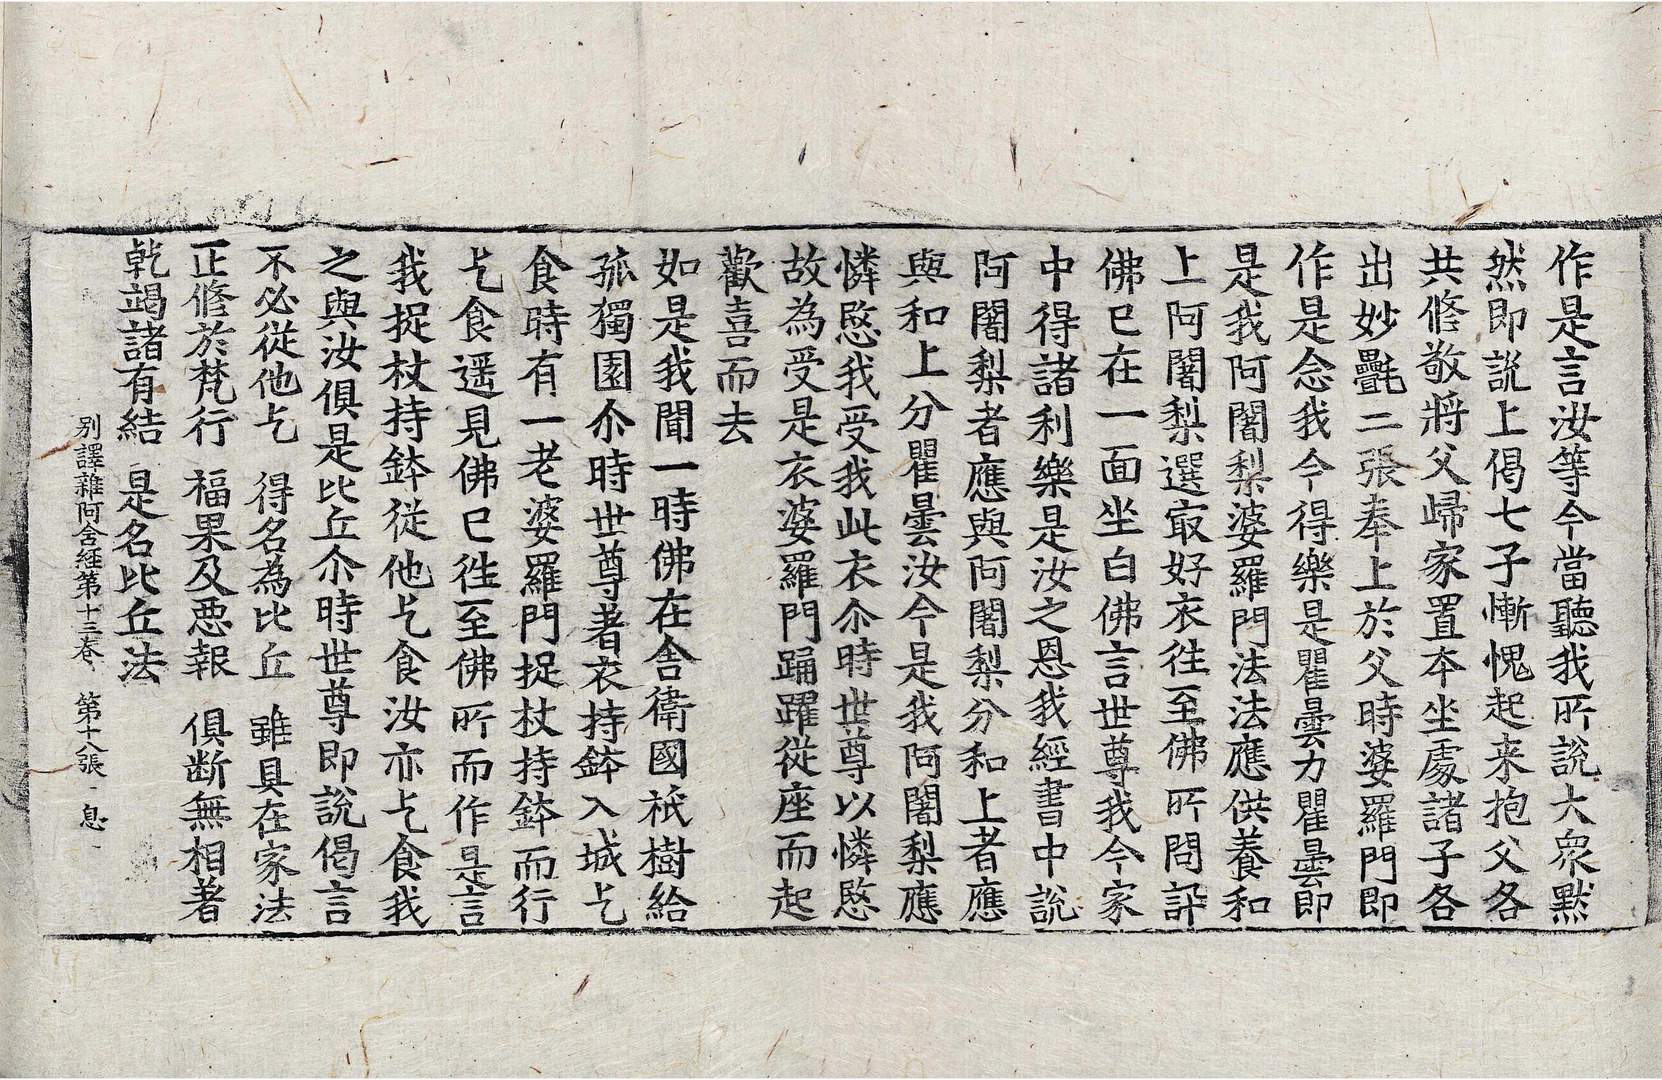 作是言汝等今當聽我所說大衆黙
然即說上偈七子慚愧起来抱父各
共修敬將父歸家置夲坐處諸子各
出妙㲲二張奉上於父時婆羅門即
作是念我今得樂是瞿曇力瞿曇即
是我阿闍梨婆羅門法法應供養和
上阿闍梨選㝡好衣徃至佛所問訊
佛已在一面坐白佛言世尊我今家
中得諸利樂是汝之恩我經書中說
阿闍梨者應與阿闍梨分和上者應
與和上分瞿曇汝今是我阿闍梨應
憐愍我受我此衣尒時世尊以憐愍
故為受是衣婆羅門踊躍從座而起
歡喜而去
如是我聞一時佛在舎衛國祇樹給
孤獨園尒時世尊著衣持鉢入城乞
食時有一老婆羅門捉杖持鉢而行
乞食遥見佛已徃至佛所而作是言
我捉杖持鉢從他乞食汝亦乞食我
之與汝俱是比丘尒時世尊即說偈言
不必從他乞　得名為比丘　雖具在家法
正修於梵行　福果及惡報　俱断無相著
乹竭諸有結　是名比丘法
别譯雜阿含経第十三卷　第十八張　息